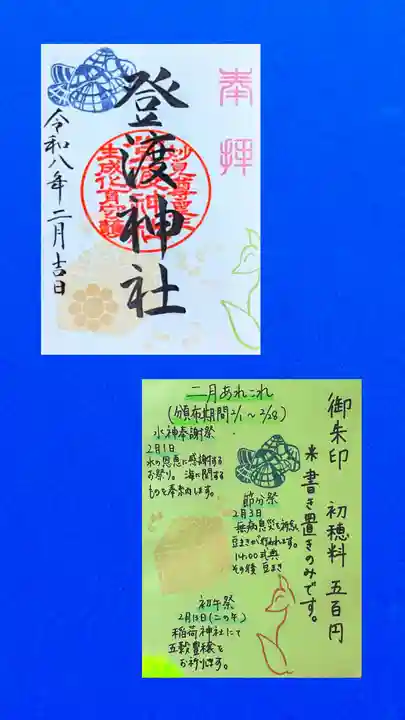 奉拝
登渡神社
令和八年二月吉日
御朱印 初穂料 五百円
※書き置きのみです。
二月あれこれ
(頒布期間2/1〜2/28)
水神奉謝祭
2月1日
水の恩恵に感謝する
お祭り。海に関する
ものを奉納します。
節分祭
2月3日
無病息災を祈念し
豆まきが行われます。
14:00式典
その後 豆まき
初午祭
2月13日(二の午)
稲荷神社にて
五穀豊穣を
お祈りします。